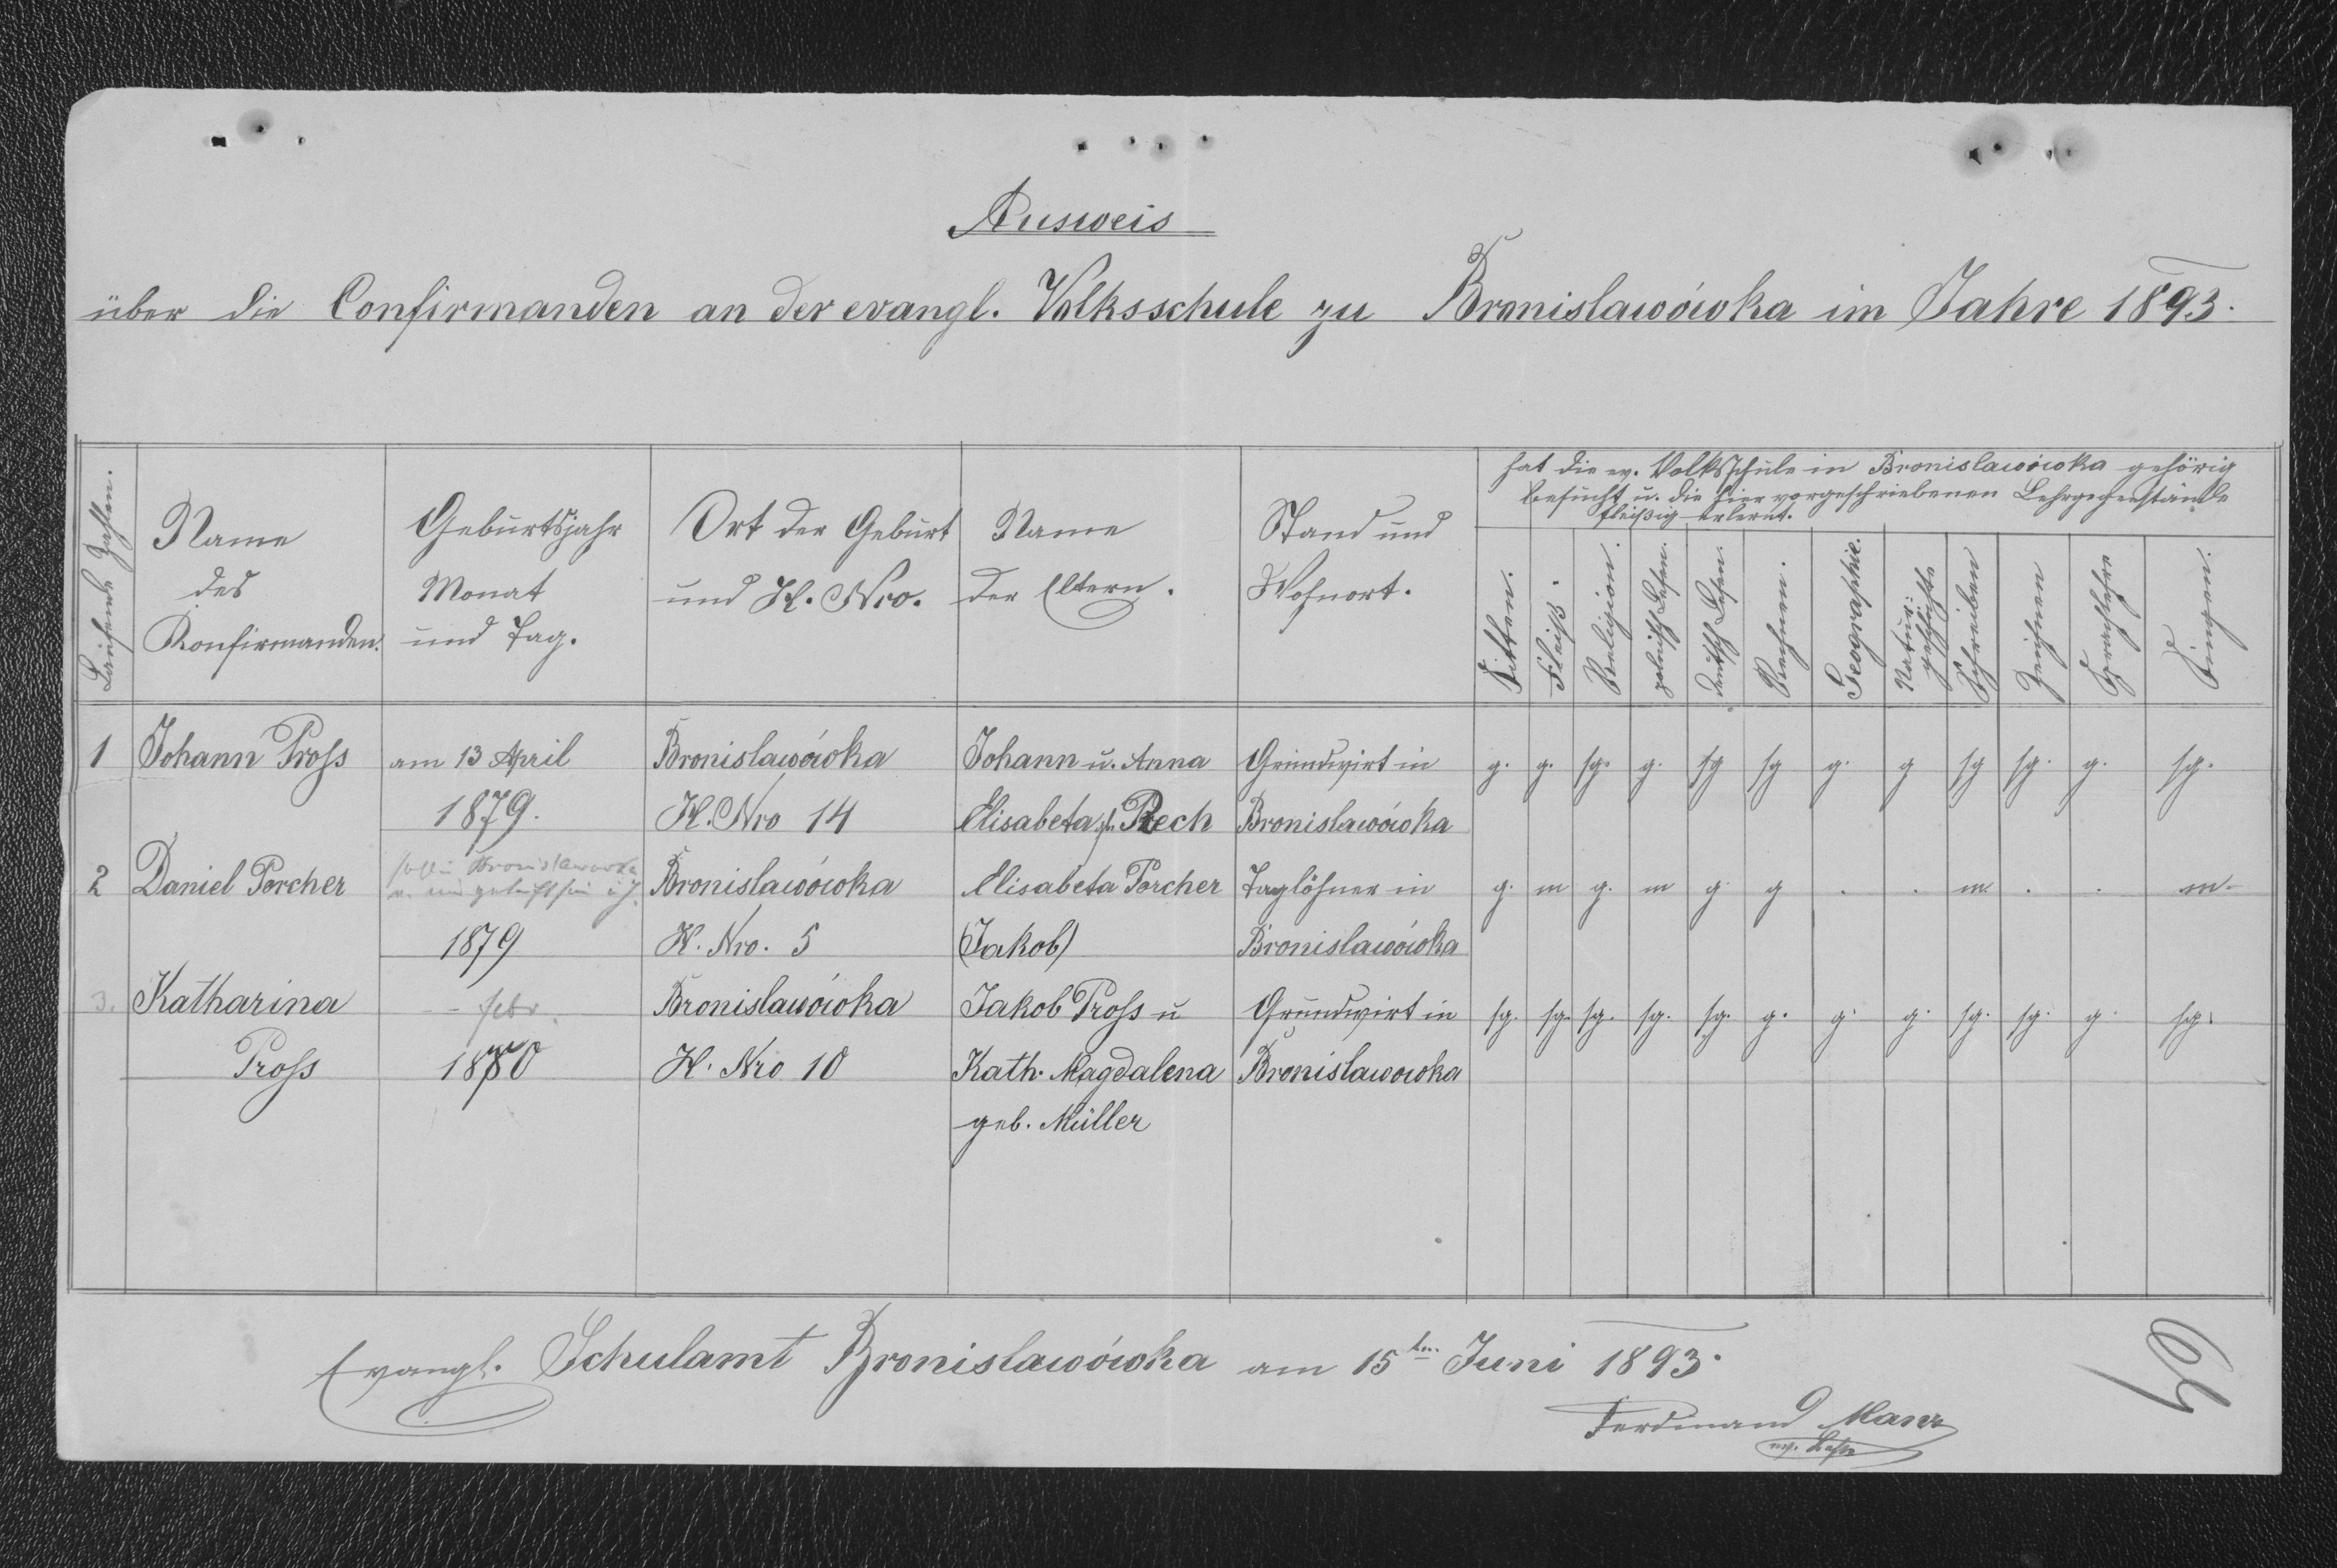 Ausweis
über die Confirmanden an der evangl. Volksschule zu Bronislawówka im Jahre 1893.
Laufende Zahlen.
Name des Konfirmanden.
Geburtsjahr Monat und Tag.
Ort der Geburt und H. Nro.
Name der Eltern.
Stand und Wohnort.
hat die ev. Volksschule in Bronislawówka gehörig
besucht u. die hier vorgeschriebenen Lehrgegenstände
fleißig erlernt.
Sitten. Fleiß. Religion. polnisch Lesen. deutsch Lesen. Rechnen. Geographie. Naturgeschichte Schreiben Zeichnen Sprachlehre Singen.
1 Johann Pross am 13 April Bronislawówka Johann u. Anna Grundwirt in g. g. sg. g. sg sg g. g sg sg. g. sg.
1879. H. Nro 14 Elisabeta Rech Bronislawówka
2 Daniel Porcher Bronislawówka Bronislawówka Elisabeta Porcher Taglöhner in g. m g. m g. g . . m. . . m.
1879 H. Nro. 5 (Jakob) Bronislawówka
3. Katharina - - febr. Bronislawówka Jakob Pross u Grundwirt in sg. sg. sg. sg. sg. g. g. g. sg. sg. g. sg.
Pross 1880 H. Nro 10 Kath. Magdalena Bronislawowka
geb. Müller
Evangl. Schulamt Bronislawówka am 15ten Juni 1893.
Ferdinand Manz
ev. Lehr